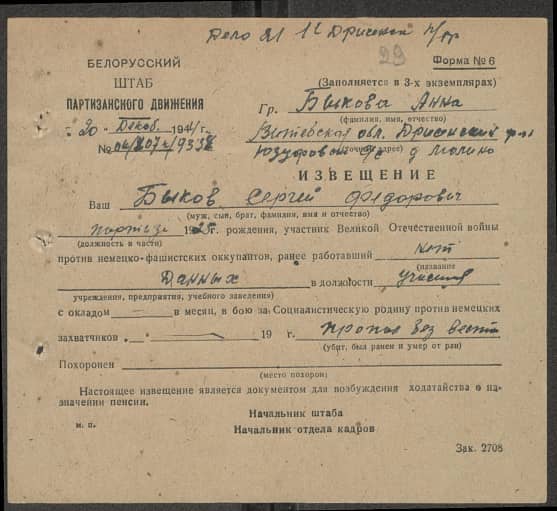 Дело 21 1й Дрисенск п/бр
29
БЕЛОРУССКИЙ
ШТАБ
ПАРТИЗАНСКОГО ДВИЖЕНИЯ
Форма № 6
(Заполняется в 3-х экземплярах)
Гр. Быкова Анна
(фамилия, имя, отчество)
"20" Декаб. 1944 г.
Витебская обл. Дрисенский р-н
№
(точный адрес)
ИЗВЕЩЕНИЕ
Ваш Быков Сергей Федорович
(муж, сын, брат, фамилия, имя и отчество)
партиз. 1925 г. рождения, участник Великой Отечественной войны
(должность в части)
против немецко-фашистских оккупантов, ранее работавший нет
(название
Данных в должности
учреждения, предприятия, учебного заведения)
с окладом в месяц, в бою за Социалистическую родину против немецких
захватчиков „ “ 19 г. пропал без вести
(убит, был ранен и умер от ран)
Похоронен
(место похорон)
Настоящее извещение является документом для возбуждения ходатайства о на-
значении пенсии.
Начальник штаба
м. п.
Начальник отдела кадров
Зак. 2708